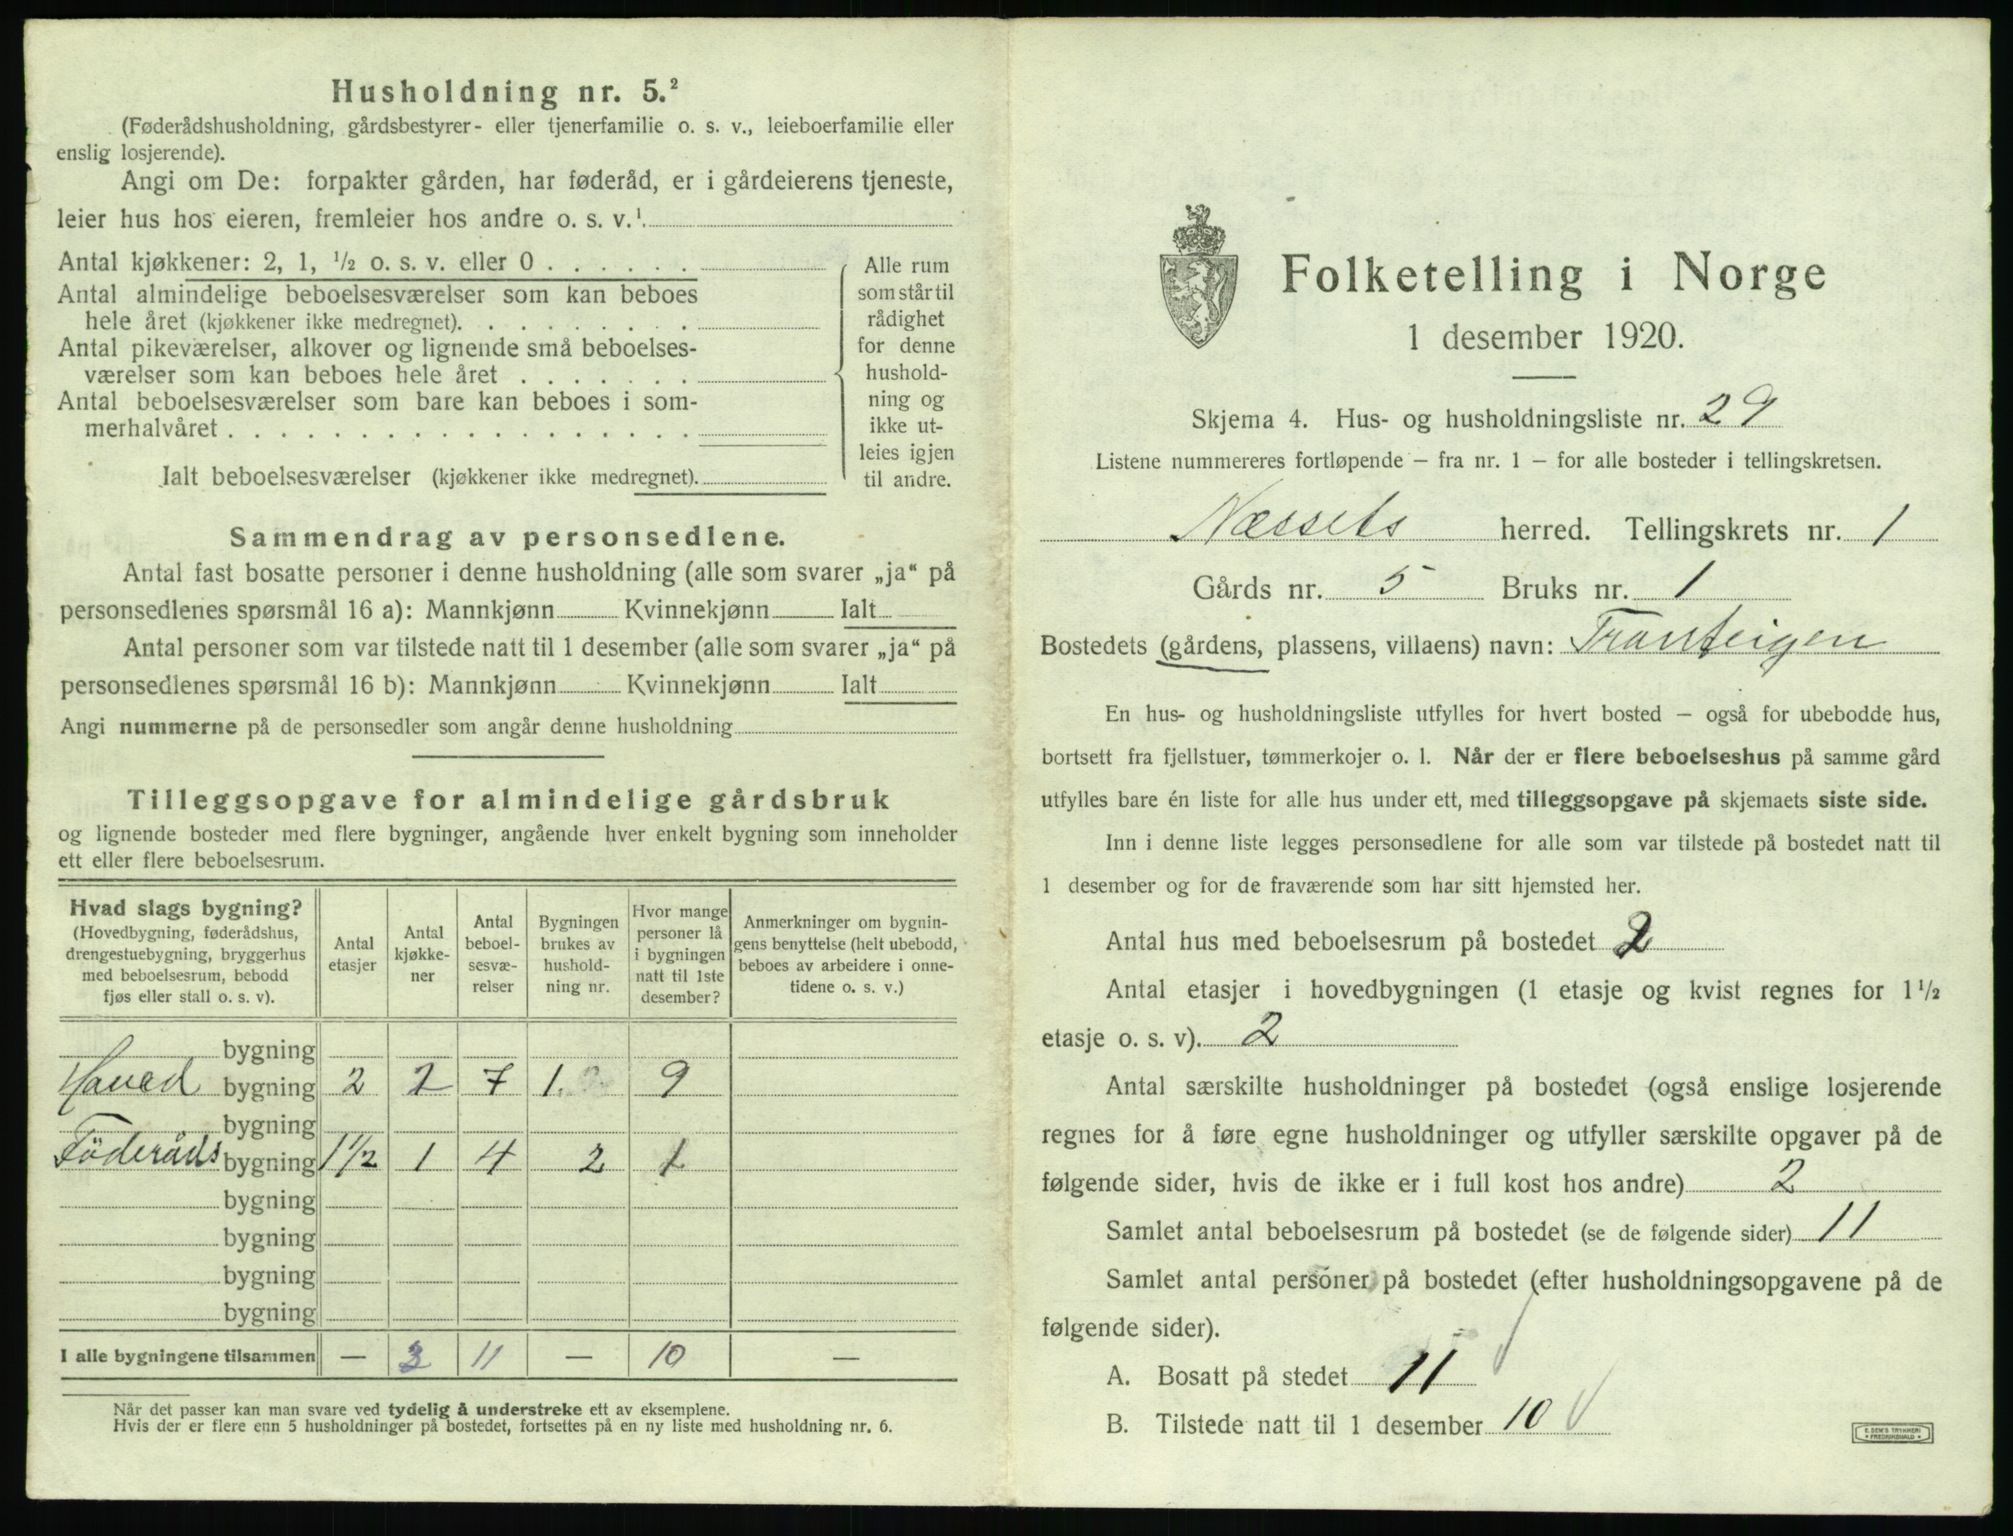 Husholdning nr. 5.²
(Føderådshusholdning, gårdsbestyrer- eller tjenerfamilie o. s. v., leieboerfamilie eller
enslig losjerende).
Angi om De: forpakter gården, har føderåd, er i gårdeierens tjeneste,
leier hus hos eieren, fremleier hos andre o. s. v.¹
Antal kjøkkener: 2, 1, ½ o. s. v. eller 0 . . . . . .
Antal almindelige beboelsesværelser som kan beboes
hele året (kjøkkener ikke medregnet). . . . . . . . .
Antal pikeværelser, alkover og lignende små beboelses-
værelser som kan beboes hele året . . . . . . .
Antal beboelsesværelser som bare kan beboes i som-
merhalvåret . . . . . . . . . . . . . . . . . .
Ialt beboelsesværelser (kjøkkener ikke medregnet).
Alle rum
som står til
rådighet
for denne
hushold-
ning og
ikke ut-
leies igjen
til andre.
Sammendrag av personsedlene.
Antal fast bosatte personer i denne husholdning (alle som svarer „ja“ på
personsedlenes spørsmål 16 a): Mannkjønn Kvinnekjønn Ialt
Antal personer som var tilstede natt til 1 desember (alle som svarer „ja“ på
personsedlenes spørsmål 16 b): Mannkjønn Kvinnekjønn Ialt
Angi nummerne på de personsedler som angår denne husholdning
Tilleggsopgave for almindelige gårdsbruk
og lignende bosteder med flere bygninger, angående hver enkelt bygning som inneholder
ett eller flere beboelsesrum.
Hvad slags bygning?
(Hovedbygning, føderådshus,
drengestuebygning, bryggerhus
med beboelsesrum, bebodd
fjøs eller stall o. s. v).
Antal
etasjer
Antal
kjøkke-
ner
Antal
beboel-
sesvæ-
relser
Bygningen
brukes av
hushold-
ning nr.
Hvor mange
personer lå
i bygningen
natt til 1ste
desember?
Anmerkninger om bygnin-
gens benyttelse (helt ubebodd,
beboes av arbeidere i onne-
tidene o. s. v.)
bygning
Hoved bygning 2 2 7 1. 9
bygning
Föderåds bygning 1½ 1 4 2 1
bygning
bygning
bygning
bygning
I alle bygningene tilsammen — 3 11 — 10 —
Når det passer kan man svare ved tydelig å understreke ett av eksemplene.
Hvis der er flere enn 5 husholdninger på bostedet, fortsettes på en ny liste med husholdning nr. 6.
Folketelling i Norge
1 desember 1920.
Skjema 4. Hus- og husholdningsliste nr. 29
Listene nummereres fortløpende – fra nr. 1 – for alle bosteder i tellingskretsen.
Næssets herred. Tellingskrets nr. 1
Gårds nr. 5 Bruks nr. 1
Bostedets (gårdens, plassens, villaens) navn: Tranteigen
En hus- og husholdningsliste utfylles for hvert bosted – også for ubebodde hus,
bortsett fra fjellstuer, tømmerkojer o. l. Når der er flere beboelseshus på samme gård
utfylles bare én liste for alle hus under ett, med tilleggsopgave på skjemaets siste side.
Inn i denne liste legges personsedlene for alle som var tilstede på bostedet natt til
1 desember og for de fraværende som har sitt hjemsted her.
Antal hus med beboelsesrum på bostedet 2
Antal etasjer i hovedbygningen (1 etasje og kvist regnes for 1½
etasje o. s. v). 2
Antal særskilte husholdninger på bostedet (også enslige losjerende
regnes for å føre egne husholdninger og utfyller særskilte opgaver på de
følgende sider, hvis de ikke er i full kost hos andre) 2
Samlet antal beboelsesrum på bostedet (se de følgende sider) 11
Samlet antal personer på bostedet (efter husholdningsopgavene på de
følgende sider).
A. Bosatt på stedet 11
B. Tilstede natt til 1 desember 10
E. SEM'S TRYKKERI
FREDRIKSHALD